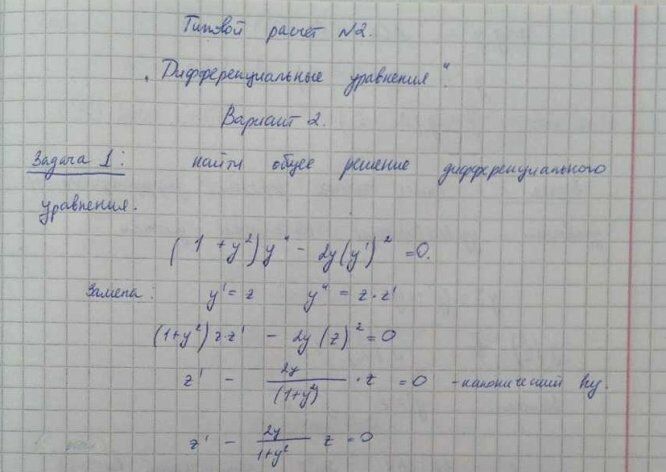 Типовой расчет №2.
„Дифференциальные уравнения“.
Вариант 2.
Задача 1: найти общее решение дифференциального
уравнения.
(1 + y²)y" - 2y(y')² = 0.
Замена: y' = z y" = z · z'
(1+y²)z·z' - 2y(z)² = 0
z' - 2y/(1+y²) · z = 0 - канонический
z' - 2y/1+y² z = 0